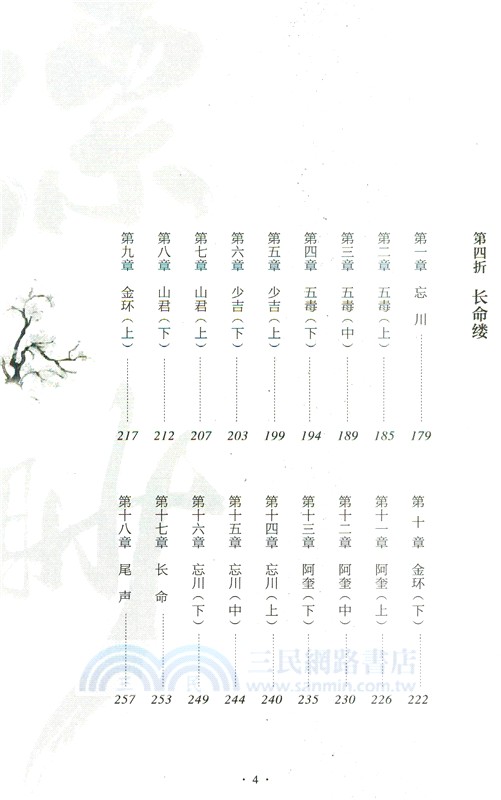 第四折 长命缕
第一章 忘川 179
第二章 五毒（上） 185
第三章 五毒（中） 189
第四章 五毒（下） 194
第五章 少吉（上） 199
第六章 少吉（下） 203
第七章 山君（上） 207
第八章 山君（下） 212
第九章 金环（上） 217
第十章 金环（下） 222
第十一章 阿奎（上） 226
第十二章 阿奎（中） 230
第十三章 阿奎（下） 235
第十四章 忘川（上） 240
第十五章 忘川（中） 244
第十六章 忘川（下） 249
第十七章 长命 253
第十八章 尾声 257
三民網路書店
www.sanmin.com.tw
· 4 ·